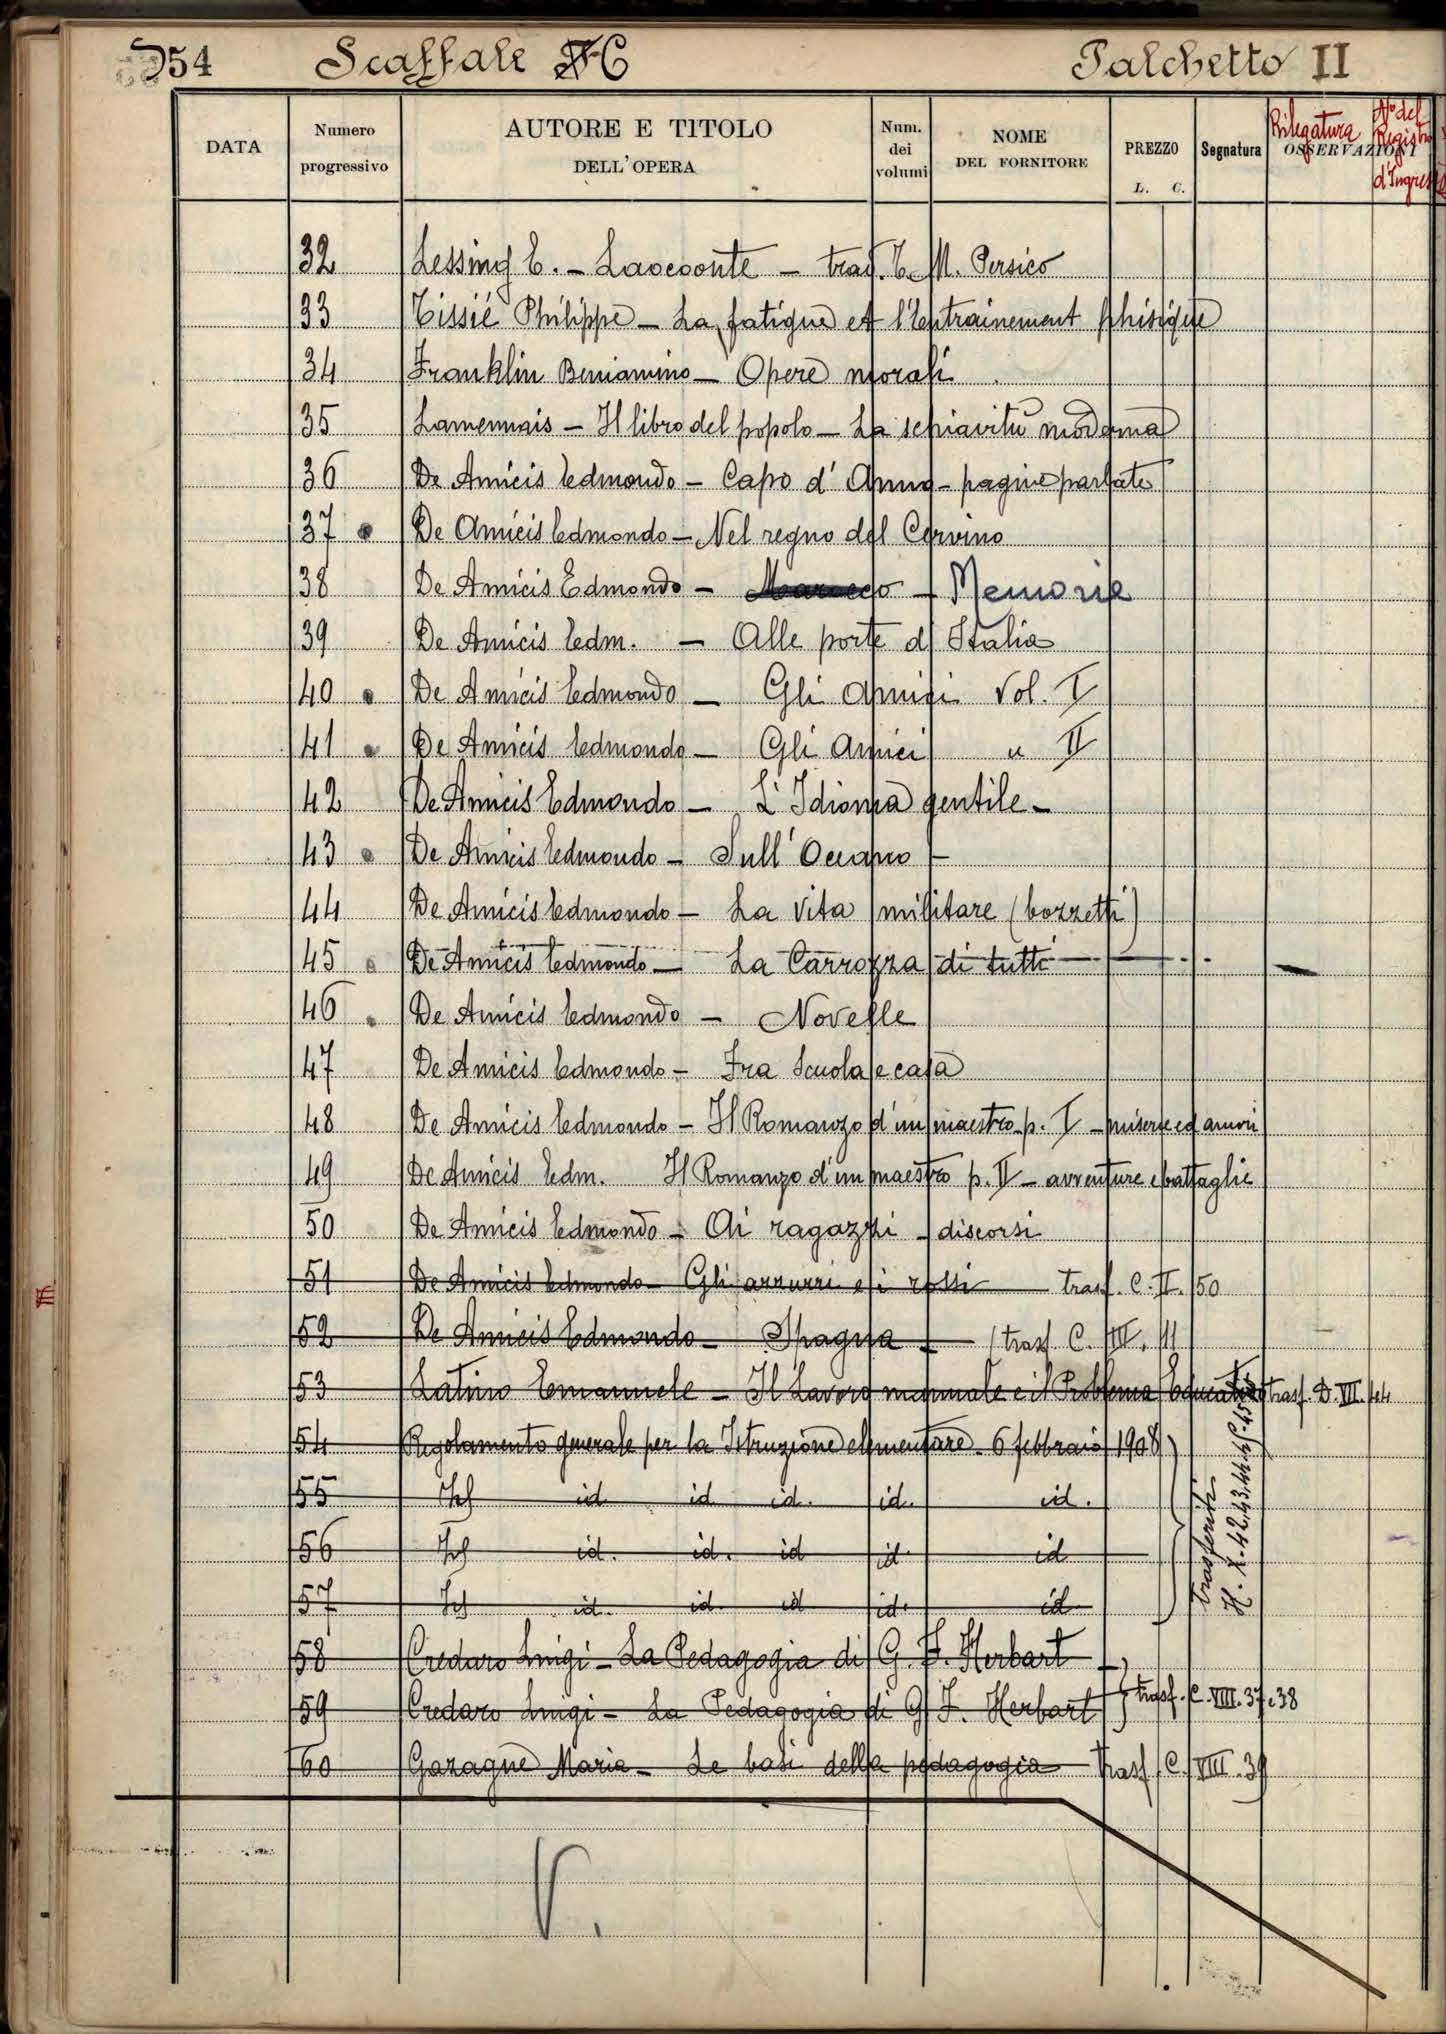 54 Scaffale C Palchetto II
DATA Numero progressivo AUTORE E TITOLO DELL'OPERA Num. dei volumi NOME DEL FORNITORE PREZZO L. C. Segnatura OSSERVAZIONI Rilegatura No del Registro d'Ingresso
32 Lessing E. - Laocoonte - trad. T. M. Persico
33 Tissié Philippe - La fatigue et l'entrainement phisique
34 Franklin Beniamino - Opere morali
35 Lamennais - Il libro del popolo - La schiavitù moderna
36 De Amicis Edmondo - Capo d'Anno - pagine parlate
37 De Amicis Edmondo - Nel regno del Cervino
38 De Amicis Edmondo - Marocco - Memorie
39 De Amicis Edm. - Alle porte d'Italia
40 De Amicis Edmondo - Gli Amici Vol. I
41 De Amicis Edmondo - Gli Amici " II
42 De Amicis Edmondo - L'Idioma gentile -
43 De Amicis Edmondo - Sull'Oceano -
44 De Amicis Edmondo - La Vita militare (bozzetti)
45 De Amicis Edmondo - La Carrozza di tutti
46 De Amicis Edmondo - Novelle
47 De Amicis Edmondo - Fra Scuola e casa
48 De Amicis Edmondo - Il Romanzo d'un maestro p. I - miserie ed amori
49 De Amicis Edm. Il Romanzo d'un maestro p. II - avventure e battaglie
50 De Amicis Edmondo - Ai ragazzi - discorsi
51 De Amicis Edmondo - Gli azzurri e i rossi trasf. C. II. 50
52 De Amicis Edmondo - Spagna - (trasf. C. III. 11
53 Latino Emanuele - Il Lavoro manuale e il Problema Educativo trasf. D. VII. 44
54 Regolamento generale per la Istruzione elementare - 6 febbraio 1908
55 Id id id id. id. id.
56 Id id. id. id id. id
57 Id id. id. id id. id
trasferiti
H. X. 42,43,44,45
58 Credaro Luigi - La Pedagogia di G. F. Herbart
59 Credaro Luigi - La Pedagogia di G. F. Herbart trasf. C. VIII. 37 e 38
60 Gazagne Maria - Le basi della pedagogia trasf. C. VIII. 39
V.